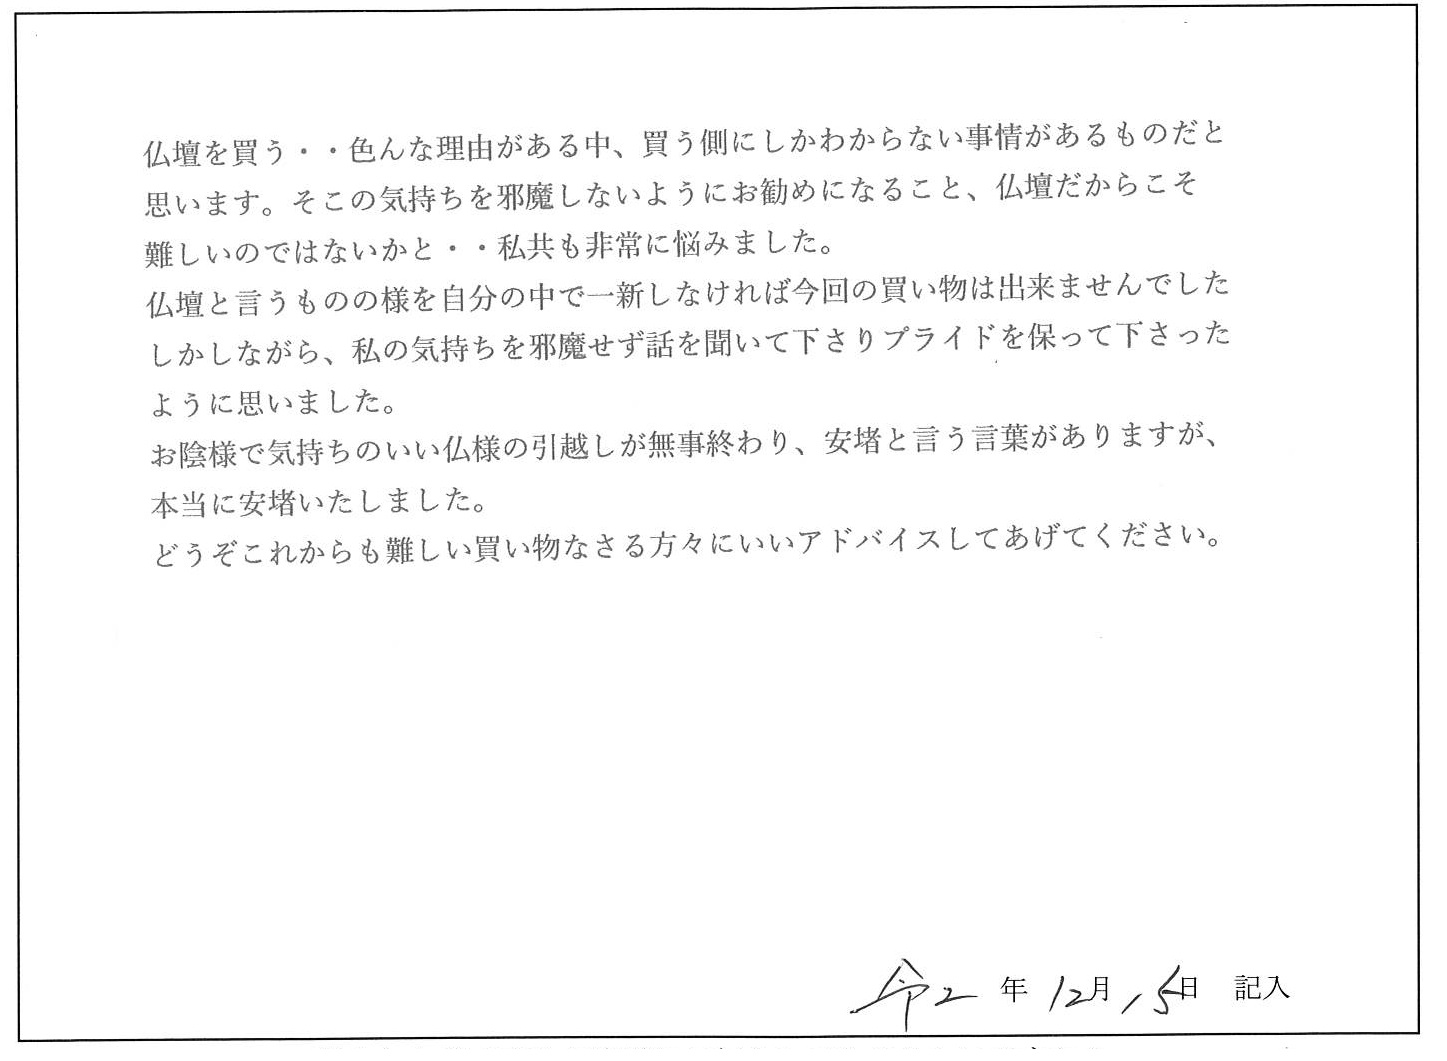 仏壇を買う・・色んな理由がある中、買う側にしかわからない事情があるものだと
思います。そこの気持ちを邪魔しないようにお勧めになること、仏壇だからこそ
難しいのではないかと・・私共も非常に悩みました。
仏壇と言うものの様を自分の中で一新しなければ今回の買い物は出来ませんでした
しかしながら、私の気持ちを邪魔せず話を聞いて下さりプライドを保って下さった
ように思いました。
お陰様で気持ちのいい仏様の引越しが無事終わり、安堵と言う言葉がありますが、
本当に安堵いたしました。
どうぞこれからも難しい買い物なさる方々にいいアドバイスしてあげてください。
令2 年 12月 15日 記入